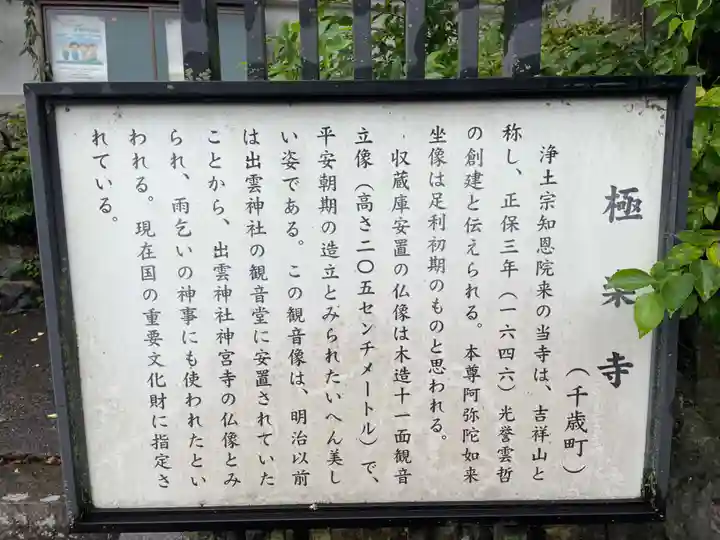 極楽寺
（千歳町）
浄土宗知恩院来の当寺は、吉祥山と
称し、正保三年（一六四六）光誉雲哲
の創建と伝えられる。本尊阿弥陀如来
坐像は足利初期のものと思われる。
収蔵庫安置の仏像は木造十一面観音
立像（高さ二〇五センチメートル）で、
平安朝期の造立とみられたいへん美し
い姿である。この観音像は、明治以前
は出雲神社の観音堂に安置されていた
ことから、出雲神社神宮寺の仏像とみ
られ、雨乞いの神事にも使われたとい
われる。現在国の重要文化財に指定さ
れている。